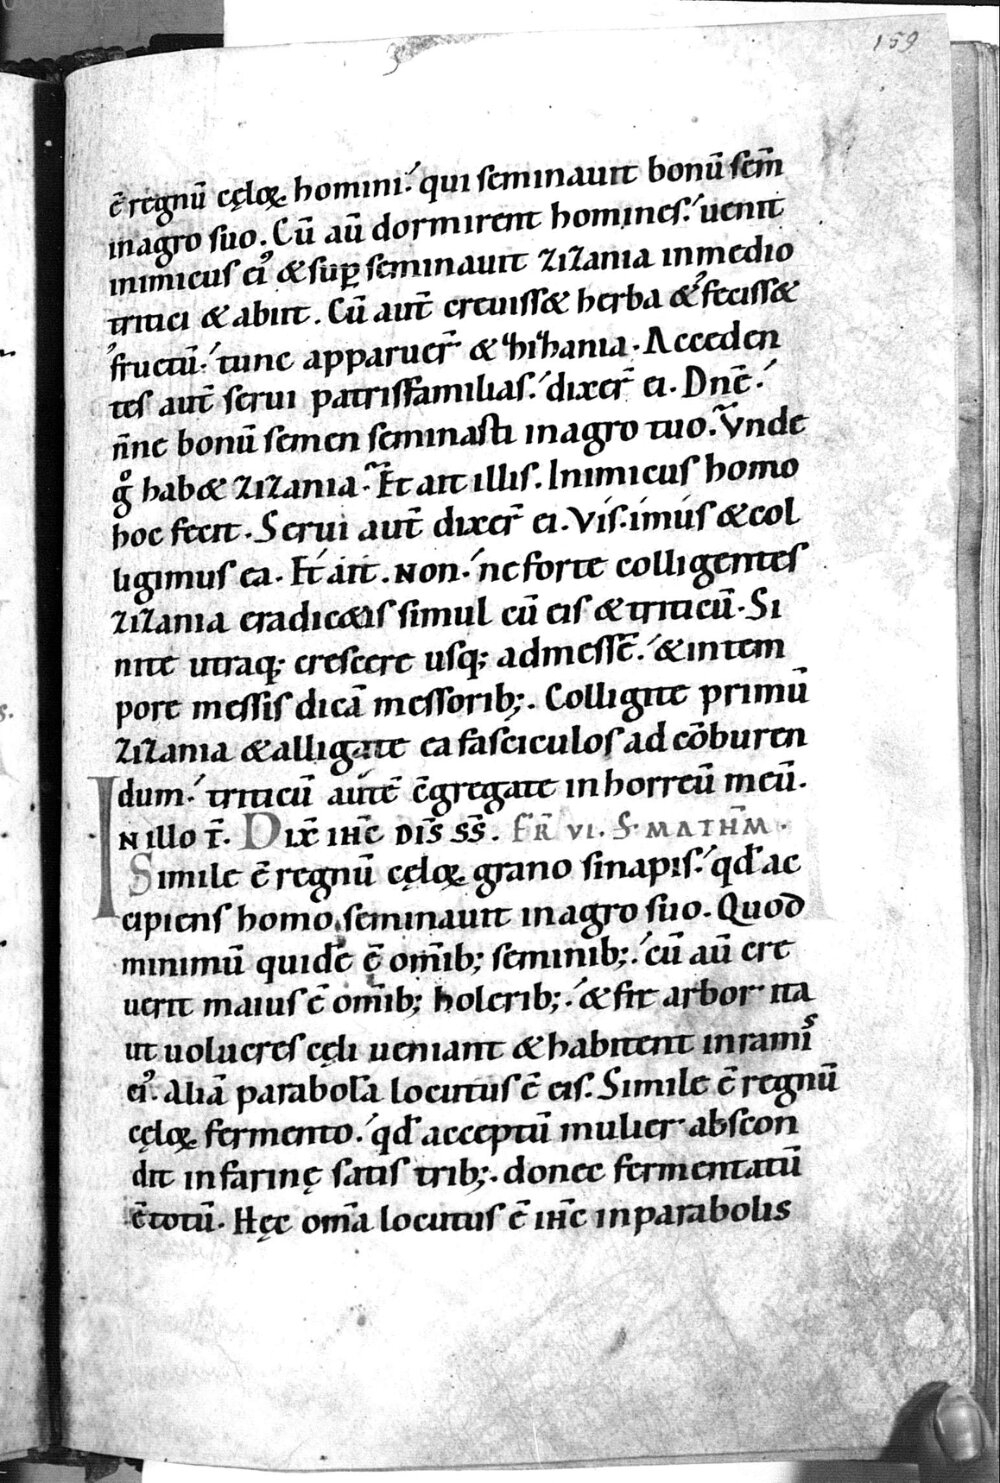 159
ē regnū cęloꝝ homini. qui seminauit bonū sem̄
in agro suo. Cū aū dormirent homines. uenit
inimicus ei᾿ & sup̱ seminauit zizania in medio
tritici & abiit. Cū aut̄ creuiss& herba & feciss&
fructū. tunc apparuer̄ & zizania. Acceden
tes aut̄ serui patrisfamilias. dixer̄ ei. Dnē.
n̄ne bonū semen seminasti in agro tuo. Vnde
gͦ hab& zizania. Et ait illis. Inimicus homo
hoc fecit. Serui aut̄ dixer̄ ei. Vis. imus & col
ligimus ea. Et ait. Non. ne forte colligentes
zizania eradic&is simul cū eis & triticū. Si
nite utraq; crescere usq; ad messē. & in tem
pore messis dicā messorib;. Colligite primū
zizania & alligate ea fasciculos ad cōburen
dum. triticū autē c̄gregate in horreū meū.
In illo t̄. Dix̄ ihc̄ dis̄ ss̄. Fr̄ VI. S. Mathm̄.
Simile ē regnū cęloꝝ grano sinapis. qd̄ ac
cipiens homo seminauit in agro suo. Quod
minimū quidē ē om̄ib; seminib;. cū aū cre
uerit maius ē om̄ib; holerib;. & fit arbor ita
ut uolucres cęli ueniant & habitent in ramis
ei᾿. Aliā parabolā locutus ē eis. Simile ē regnū
cęloꝝ fermento. qd̄ acceptū mulier abscon
dit in farinę satis trib;. donec fermentatū
ē totū. Hęc om̄a locutus ē ihc̄ in parabolis